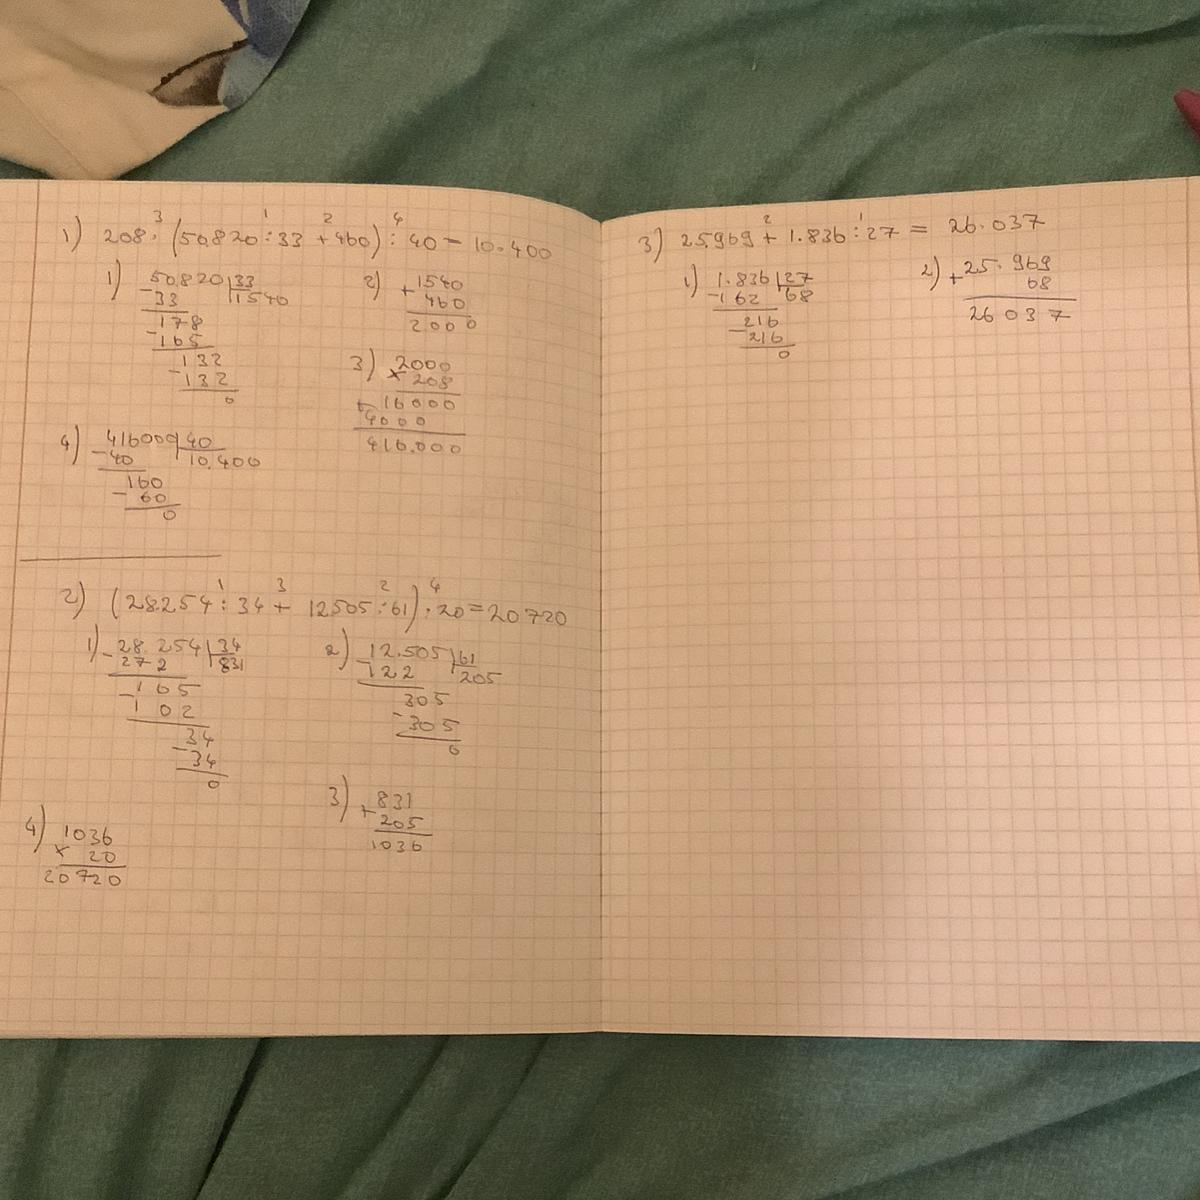 3 1 2 4
1) 208·(50.820:33+460):40=10.400
1) 50.820 33
-33 1540
178
-165
132
-132
0
2) +1540
460
2000
3) 2000
×208
+16000
4000
416.000
4) 416000 40
-40 10.400
160
-60
0
1 3 2 4
2) (28.254:34+12505:61)·20=20720
1) -28.254 34
272 831
-105
102
34
-34
0
2) 12.505 61
-122 205
305
-305
0
3) +831
205
1036
4) 1036
×20
20720
2 1
3) 25.969+1.836:27=26.037
1) 1.836 27
-162 68
216
-216
0
2) +25.969
68
26037